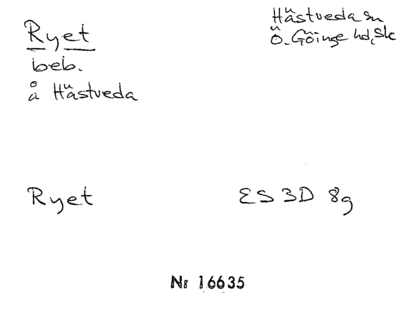 Ryet
beb.
å Hästveda
Hästveda sn
Ö. Göinge hd, Sk
Ryet
ES 3D 8g
Nr 16635